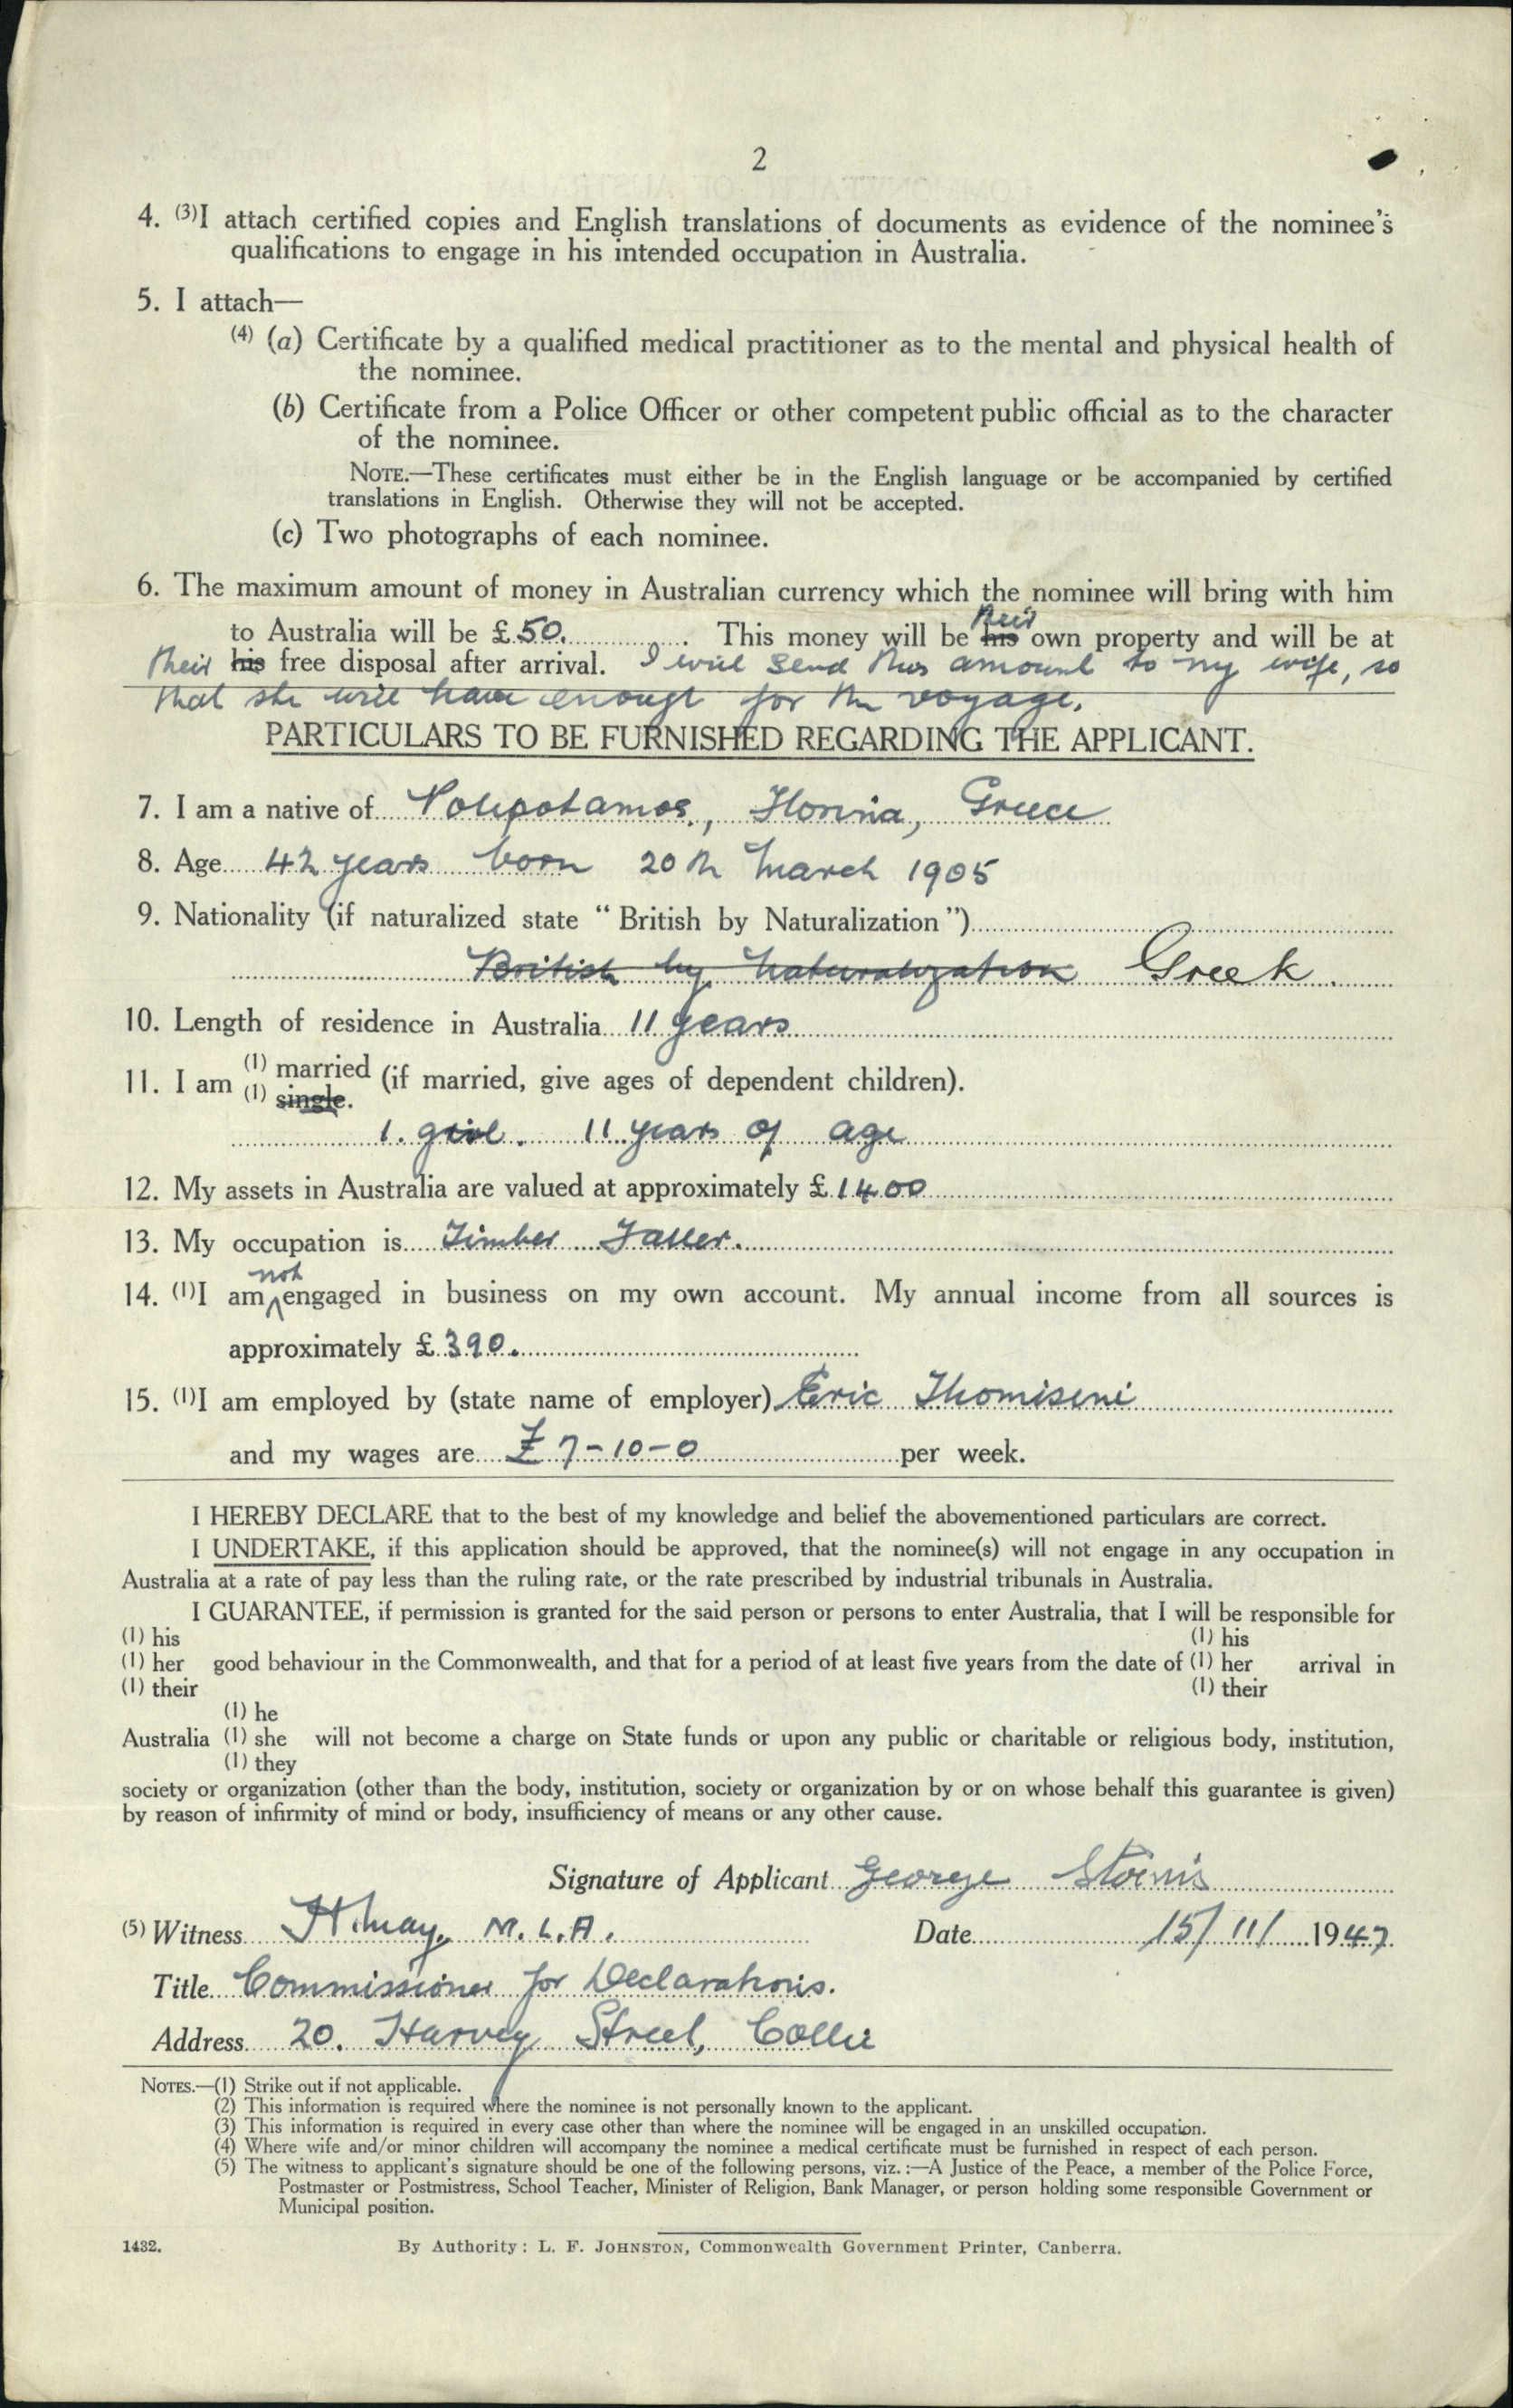 2
4. (3)I attach certified copies and English translations of documents as evidence of the nominee's
qualifications to engage in his intended occupation in Australia.
5. I attach—
(4) (a) Certificate by a qualified medical practitioner as to the mental and physical health of
the nominee.
(b) Certificate from a Police Officer or other competent public official as to the character
of the nominee.
NOTE.—These certificates must either be in the English language or be accompanied by certified
translations in English. Otherwise they will not be accepted.
(c) Two photographs of each nominee.
6. The maximum amount of money in Australian currency which the nominee will bring with him
their
to Australia will be £ 50. This money will be his own property and will be at
their his free disposal after arrival. I will send this amount to my wife, so
that she will have enough for the voyage.
PARTICULARS TO BE FURNISHED REGARDING THE APPLICANT.
7. I am a native of Polipotamos, Florina, Greece
8. Age 42 years born 20th March 1905
9. Nationality (if naturalized state "British by Naturalization")
British by Naturalization Greek.
10. Length of residence in Australia 11 years
11. I am (1) married (if married, give ages of dependent children).
(1) single.
1. girl. 11 years of age
12. My assets in Australia are valued at approximately £ 1400
13. My occupation is Timber Faller.
not
14. (1)I am engaged in business on my own account. My annual income from all sources is
approximately £ 390.
15. (1)I am employed by (state name of employer) Eric Thomiseni
and my wages are £ 7-10-0 per week.
I HEREBY DECLARE that to the best of my knowledge and belief the abovementioned particulars are correct.
I UNDERTAKE, if this application should be approved, that the nominee(s) will not engage in any occupation in
Australia at a rate of pay less than the ruling rate, or the rate prescribed by industrial tribunals in Australia.
I GUARANTEE, if permission is granted for the said person or persons to enter Australia, that I will be responsible for
(1) his (1) his
(1) her good behaviour in the Commonwealth, and that for a period of at least five years from the date of (1) her arrival in
(1) their (1) their
(1) he
Australia (1) she will not become a charge on State funds or upon any public or charitable or religious body, institution,
(1) they
society or organization (other than the body, institution, society or organization by or on whose behalf this guarantee is given)
by reason of infirmity of mind or body, insufficiency of means or any other cause.
Signature of Applicant George Stoinis
(5) Witness H. May, M.L.A. Date 15/11/1947.
Title Commissioner for Declarations.
Address 20. Harvey Street, Collie
NOTES.—(1) Strike out if not applicable.
(2) This information is required where the nominee is not personally known to the applicant.
(3) This information is required in every case other than where the nominee will be engaged in an unskilled occupation.
(4) Where wife and/or minor children will accompany the nominee a medical certificate must be furnished in respect of each person.
(5) The witness to applicant's signature should be one of the following persons, viz.:—A Justice of the Peace, a member of the Police Force,
Postmaster or Postmistress, School Teacher, Minister of Religion, Bank Manager, or person holding some responsible Government or
Municipal position.
1432. By Authority: L. F. JOHNSTON, Commonwealth Government Printer, Canberra.